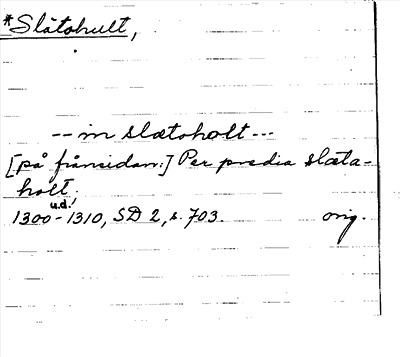 *Slätshult,
-- in slætsholt ---
[på frånsidan:] Per predia slæta-
holt.
u.d.
1300-1310, SD 2, s. 703. orig.